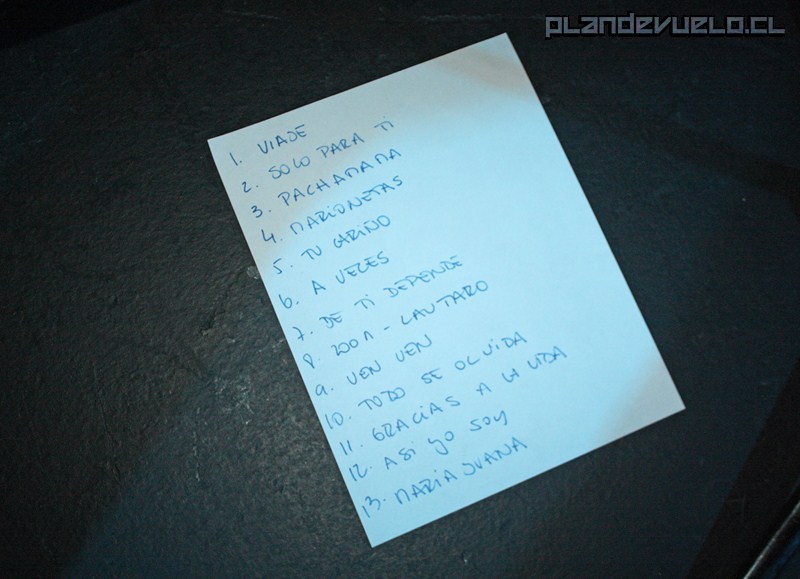 PLANDEVUELO.CL
1. VIAJE
2. SOLO PARA TI
3. PACHAMAMA
4. MARIONETAS
5. TU CARIÑO
6. A VECES
7. DE TI DEPENDE
8. ZOOM - LAUTARO
9. VEN VEN
10. TODO SE OLVIDA
11. GRACIAS A LA VIDA
12. ASI YO SOY
13. MARIA JUANA